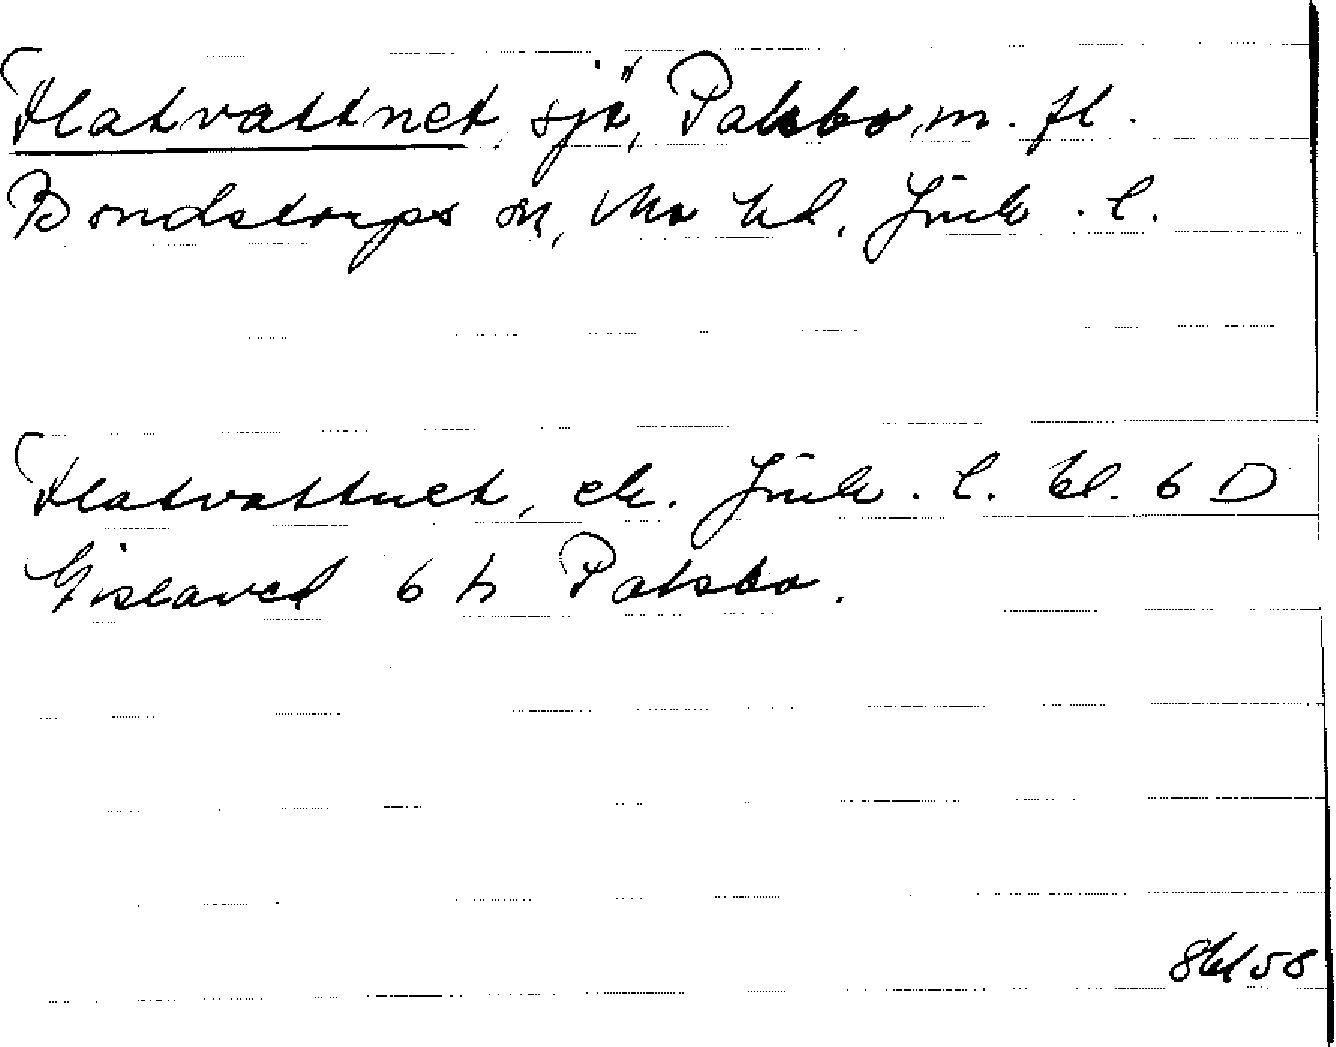 Flatvattnet, sjö, Patsbo, m. fl.
Bondstorps sn, Mo hd, Jönk. l.
Flatvattnet, ek. Jönk. l. bl. 6 D
Gislaved 6 h Patsbo.